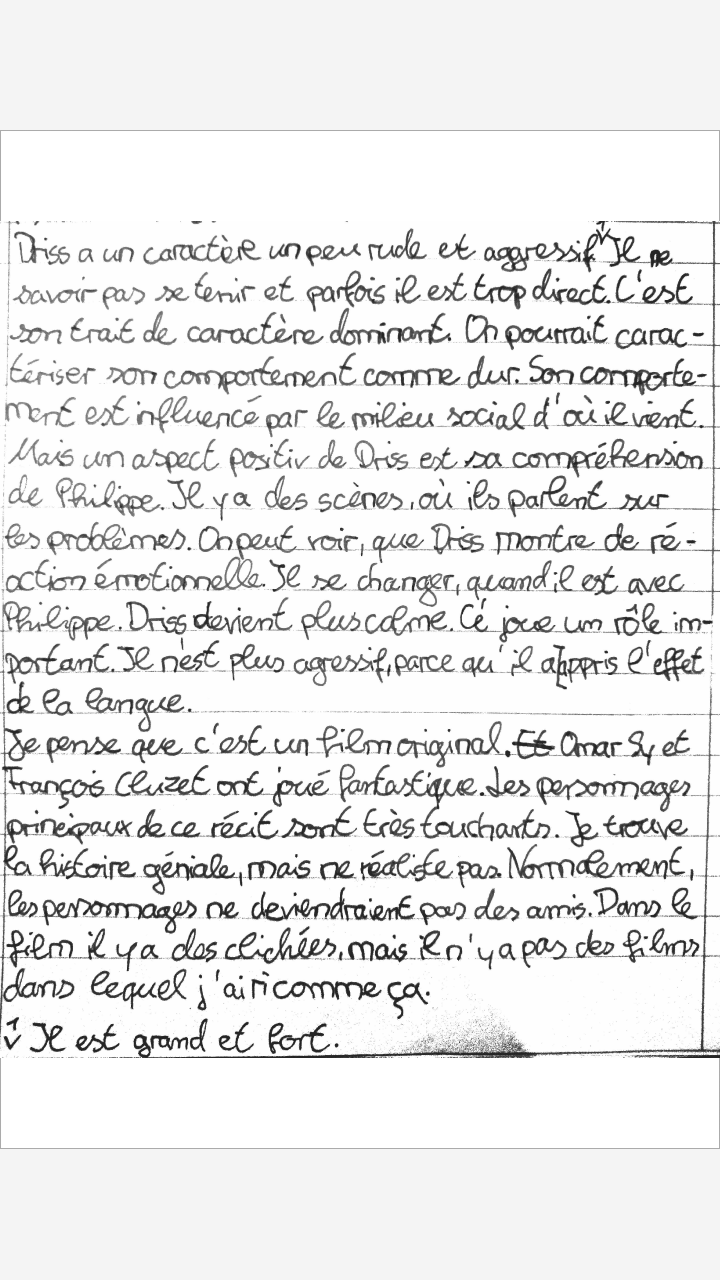 Driss a un caractère un peu rude et aggressif.√¹ Il ne
savoir pas se tenir et parfois il est trop direct. C'est
son trait de caractère dominant. On pourrait carac-
tériser son comportement comme dur. Son comporte-
ment est influencé par le milieu social d'où il vient.
Mais un aspect positiv de Driss est sa compréhension
de Philippe. Il y a des scènes, où ils parlent sur
les problèmes. On peut voir, que Driss montre de ré-
action émotionnelle. Il se changer, quand il est avec
Philippe. Driss devient plus calme. Cé joue un rôle im-
portant. Il n'est plus agressif, parce qu'il a appris l'effet
de la langue.
Je pense que c'est un film original. Et Omar Sy et
François Cluzet ont joué fantastique. Les personnages
principaux de ce récit sont très touchants. Je trouve
la histoire géniale, mais ne réaliste pas. Normalement,
les personnages ne deviendraient pas des amis. Dans le
film il y a des clichées, mais il n'y a pas des films
dans lequel j'ai ri comme ça.
√¹ Il est grand et fort.